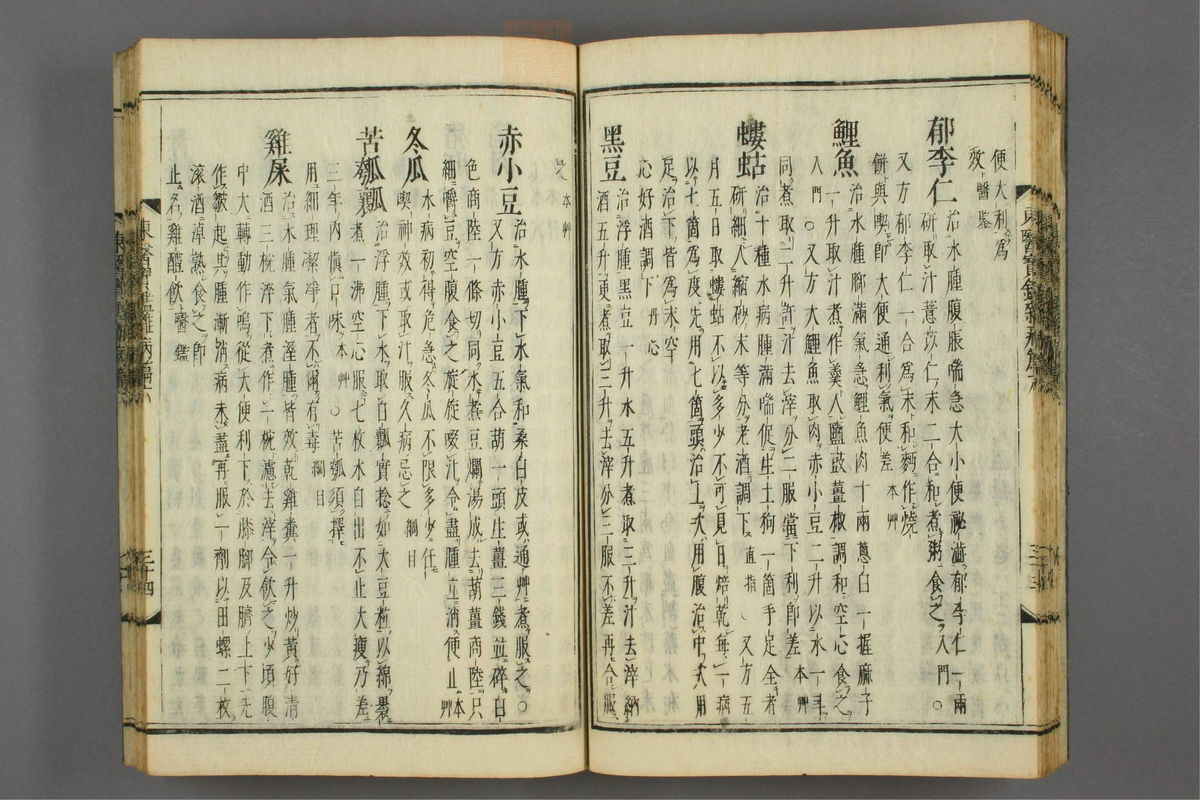 便大利爲
效醫鑑
郁李仁治水腫腹脹喘急大小便祕澁郁李仁一兩
研取汁薏苡仁末二合和煮粥食之入門○
又方郁李仁一合爲末和麪作燒
餅與喫卽大便通利氣便差本艸
鯉魚治水腫脚滿氣急鯉魚肉十兩葱白一握麻子
一升取汁煮作羹入鹽豉薑椒調和空心食之
入門○又方大鯉魚取肉赤小豆二升以水一斗
同煮取二升許汁去滓分二服當下利卽差本艸
螻蛄治十種水病腫滿喘促生土狗一箇手足全者
研細入縮砂末等分老酒調下直指○又方五
月五日取螻蛄不以多少不可見日焙乾每一病
以七箇爲度先用七箇頭治上次用腹治中次用
足治下皆爲末空
心好酒調下丹心
黑豆治浮腫黑豆一升水五升煮取三升汁去滓納
酒五升更煮取三升去滓分三服不差再合服
之本艸
赤小豆治水腫下水氣和桑白皮或通艸煮服之○
又方赤小豆五合葫一頭生薑三錢並碎白
色商陸一條切同水煮豆爛湯成去葫薑商陸只
細嚼豆空腹食之旋旋啜汁令盡腫立消便止本艸
冬瓜水病初得危急冬瓜不限多少任
喫神效或取汁服久病忌之綱目
苦瓠瓤治浮腫下水取白瓤實捻如大豆粒以綿裹
煮一沸空心服七枚水自出不止大瘦乃差
三年內愼口味本艸○苦瓠須擇
用細理潔淨者不爾有毒綱目
雞屎治水腫氣腫溼腫皆效乾雞糞一升炒黃好清
酒三椀淬下煮作一椀濾去滓令飲之少頃腹
中大轉動作鳴從大便利下於膝脚及臍上下先
作皺起其腫漸消病未盡再服一劑以田螺二枚
滚酒淖熟食之卽
止名雞醴飲醫鑑
三十四
三十三